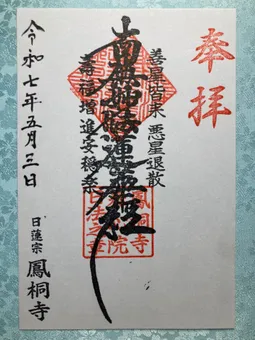 奉拝
善星皆来 悪星退散
南無妙法蓮華経
寿福増進安穏楽
鳳桐寺
令和七年五月三日
日蓮宗 鳳桐寺